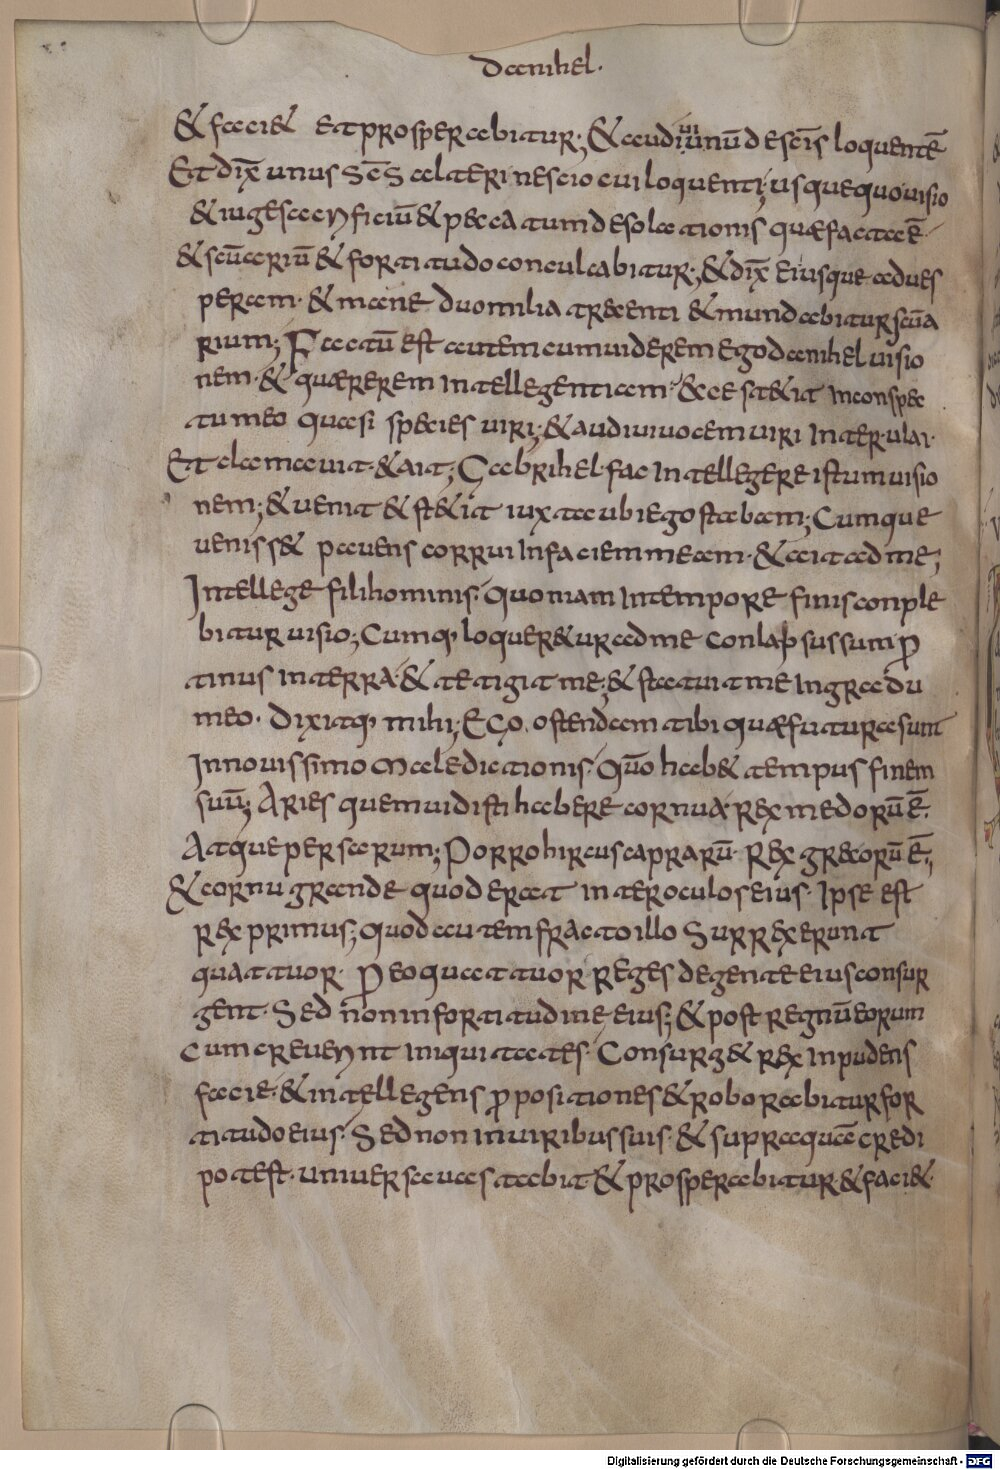 Danihel.
& faci& et prosperabitur; & audiui unū de scīs loquentē
Et dix̄ unus sc̄s alteri nescio cui loquenti; usquequo uisio
& iuge sacrificiū & peccatum desolationis quæ facta ē
& sc̄uariū & fortitudo conculcabitur; & dix̄ ei usque ad ues
peram· & mane duo milia trecenti & mundabitur sc̄ua
rium; Factū est autem cum uiderem ego danihel uisio
nem· & quærerem intellegentiam· & ecce st&it in conspec
tu meo quasi species uiri; & audiui uocem uiri inter ulai·
Et clamauit· & ait; Gabrihel· fac intellegere istum uisio
nem; & uenit & st&it iuxta ubi ego stabam; Cumque
ueniss& pauens corrui in faciem meam· & ait ad me;
Intellege fili hominis· quoniam in tempore finis conple
bitur uisio; Cumq; loquer&ur ad me conlapsus sum ꝓ
tinus in terra· & tetigit me; & statuit me in gradu
meo· dixitq; mihi; EGO ostendam tibi quæ futura sunt
In nouissimo maledictionis· Quō hab& tempus finem
suū; Aries quem uidisti habere cornua· rex medorū ē·
Atque persarum; Porro hircus caprarū· rex grecorū ē;
& cornu grande quod erat inter oculos eius· Ipse est
rex primus; quod autem fracto illo surrexerunt
quattuor· ꝑ eo quattuor reges de gente eius consur
gent· Sed non in fortitudine eius; & post regnū eorum
Cum creuerint iniquitates· Consurg& rex inpudens
facie· & intellegens ꝓpositiones & roborabitur for
titudo eius· Sed non in uiribus suis· & supra quā credi
potest· uniuersa uastabit· & prosperabitur· & faci&·
Digitalisierung gefördert durch die Deutsche Forschungsgemeinschaft - DFG